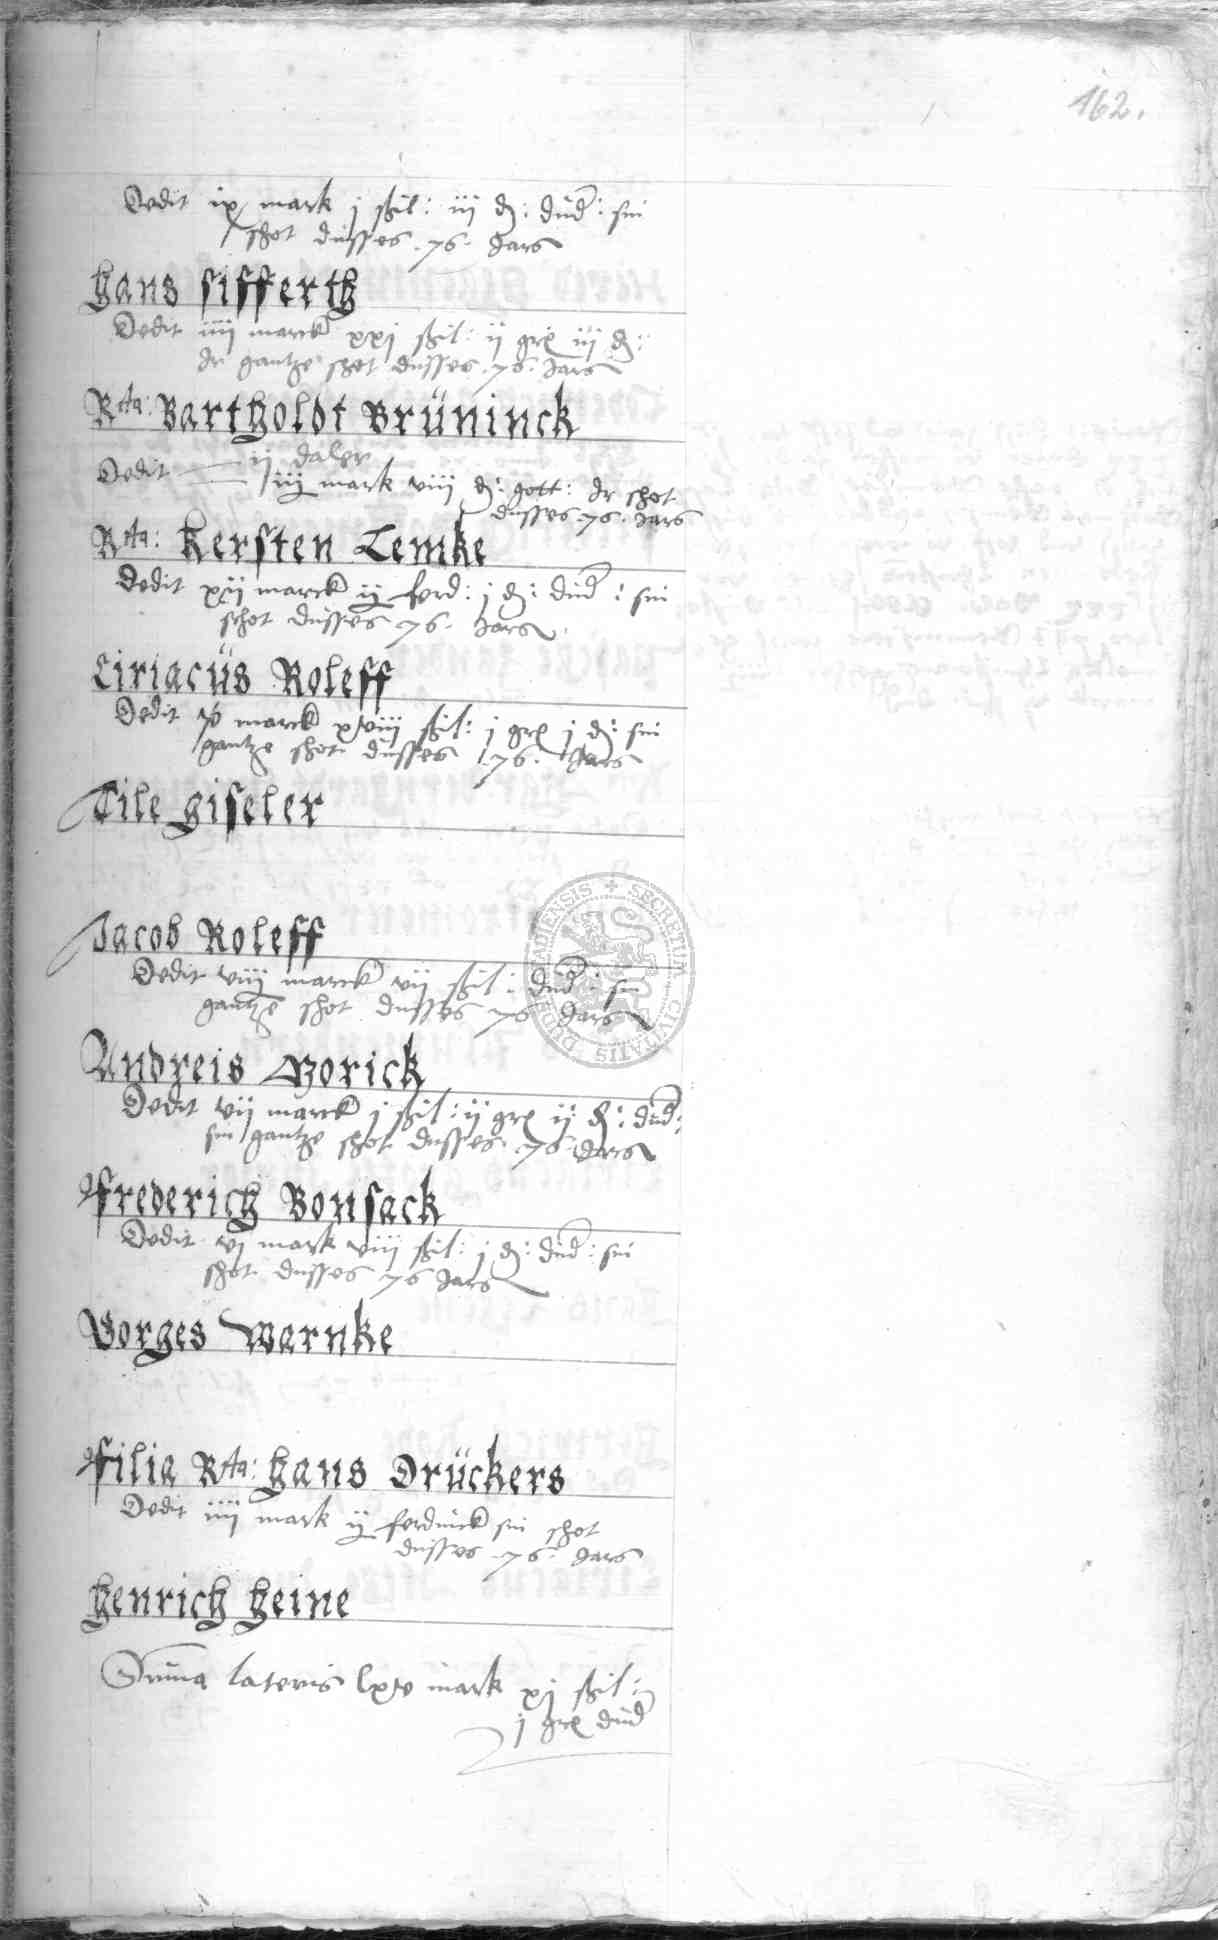 162.
Dedit ix mark j ßil: iij d: dud: sin
schot dusses 76. Jars
Hans Siffertz
Dedit iiij marck xxj ßil: ij grs iij d:
dr gantze schot dusses 76. Jars
Rta: Bartholdt Brüninck
ij daler
Dedit iij mark viij d: gott: dr schot
dusses 76. Jars
Rta: Kersten Lemke
Dedit xij marck ij ferd: j d: dud: sin
schot dusses 76. Jars
Ciriacüs Roleff
Dedit marck xviij ßil: j grs j d: sin
gantze schot dusses 76. Jars
Tile Giseler
Jacob Roleff
Dedit viij marck vij ßil: dud: sin
gantze schot dusses 76 Jars
Andreis Borick
Dedit vij marck j ßil: ij grs ij d: dud:
sin gantze schot dusses 76 Jars
Frederich Bonsack
Dedit vj mark viij ßil: j d: dud: sin
schot dusses 76 Jars
Borges Warnke
Filia Rta: Hans Drückers
Dedit iiij mark ij ferdinck sin schot
dusses 76. Jars
Henrich Heine
Suma lateris lxv mark xj ßil:
j grs dud
SECRETUM CIVITATIS DUDERSTADIENSIS